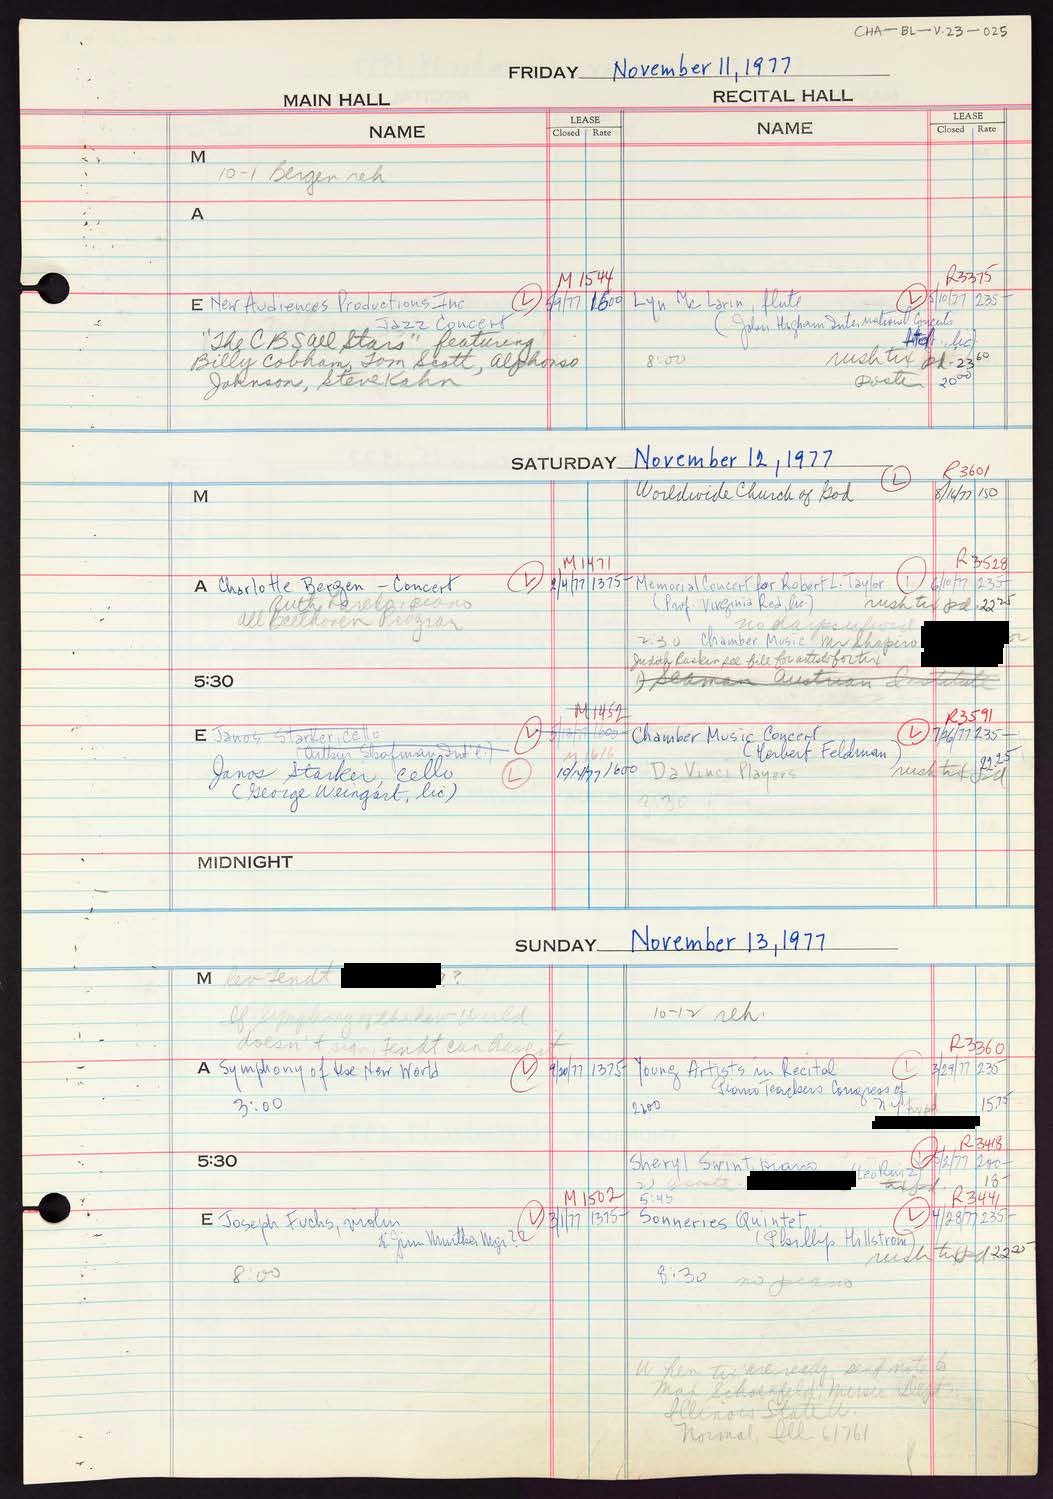 CHA-BL-V.23-025
FRIDAY November 11, 1977
MAIN HALL
RECITAL HALL
NAME
LEASE
Closed Rate
NAME
LEASE
Closed Rate
M
10-1 Bergen reh
A
M 1544
R3375
E New Audiences Productions Inc (L) 5/9/77 1600
Jazz Concert
"The CBS All Stars" featuring
Billy Cobham, Tom Scott, Alphonso
Johnson, Steve Kahn
Lyn McLarin, flute (L) 5/10/77 235-
(John Higham International Concerts
lic)
8:00 rush tix pd. 23 60
poster 20 00
SATURDAY November 12, 1977
R3601
M
Worldwide Church of God (L) 8/16/77 150
M1471
R3528
A Charlotte Bergen - Concert (L) 2/4/77 1375-
Ruth piano
all Beethoven Program
Memorial Concert for Robert L. Taylor (L) 6/10/77 235-
(Prof. Virginia Red, lic) rush tix pd. 22 25
2:30 Chamber Music Mr Shapiro
Judith Raskin see file for artist for tix
Seaman Austrian Institute
5:30
M1452
R3591
E Janos Starker, cello (L)
(Arthur Shafman Int'l)
M 1616
Janos Starker, cello (L) 10/4/77 1600
(George Weingart, lic)
Chamber Music Concert (L) 7/26/77 235-
(Herbert Feldman)
Da Vinci Players rush tix pd 22 25
8:30
MIDNIGHT
SUNDAY November 13, 1977
M Lev Fendt ?
If Symphony of the New World
doesn't sign, Fendt can have it
10-12 reh.
R3360
A Symphony of the New World (L) 9/20/77 1375-
3:00
Young Artists in Recital (L) 3/29/77 235-
Piano Teachers Congress of
N.Y. 15.75
2:00
5:30
R3418
Sheryl Swint, piano (Leo Ruiz) (L) 5/2/77 200-
18-
5:45
M1502
R3441
E Joseph Fuchs, violin (L) 3/1/77 1375-
8:00
Sonneries Quintet (L) 4/28/77 235-
(Phillip Hillstrom)
rush tix pd 22 25
8:30 no piano
When tix are ready send note to
Max Schoenfeld, Music Dept.
Illinois State U.
Normal, Ill. 61761